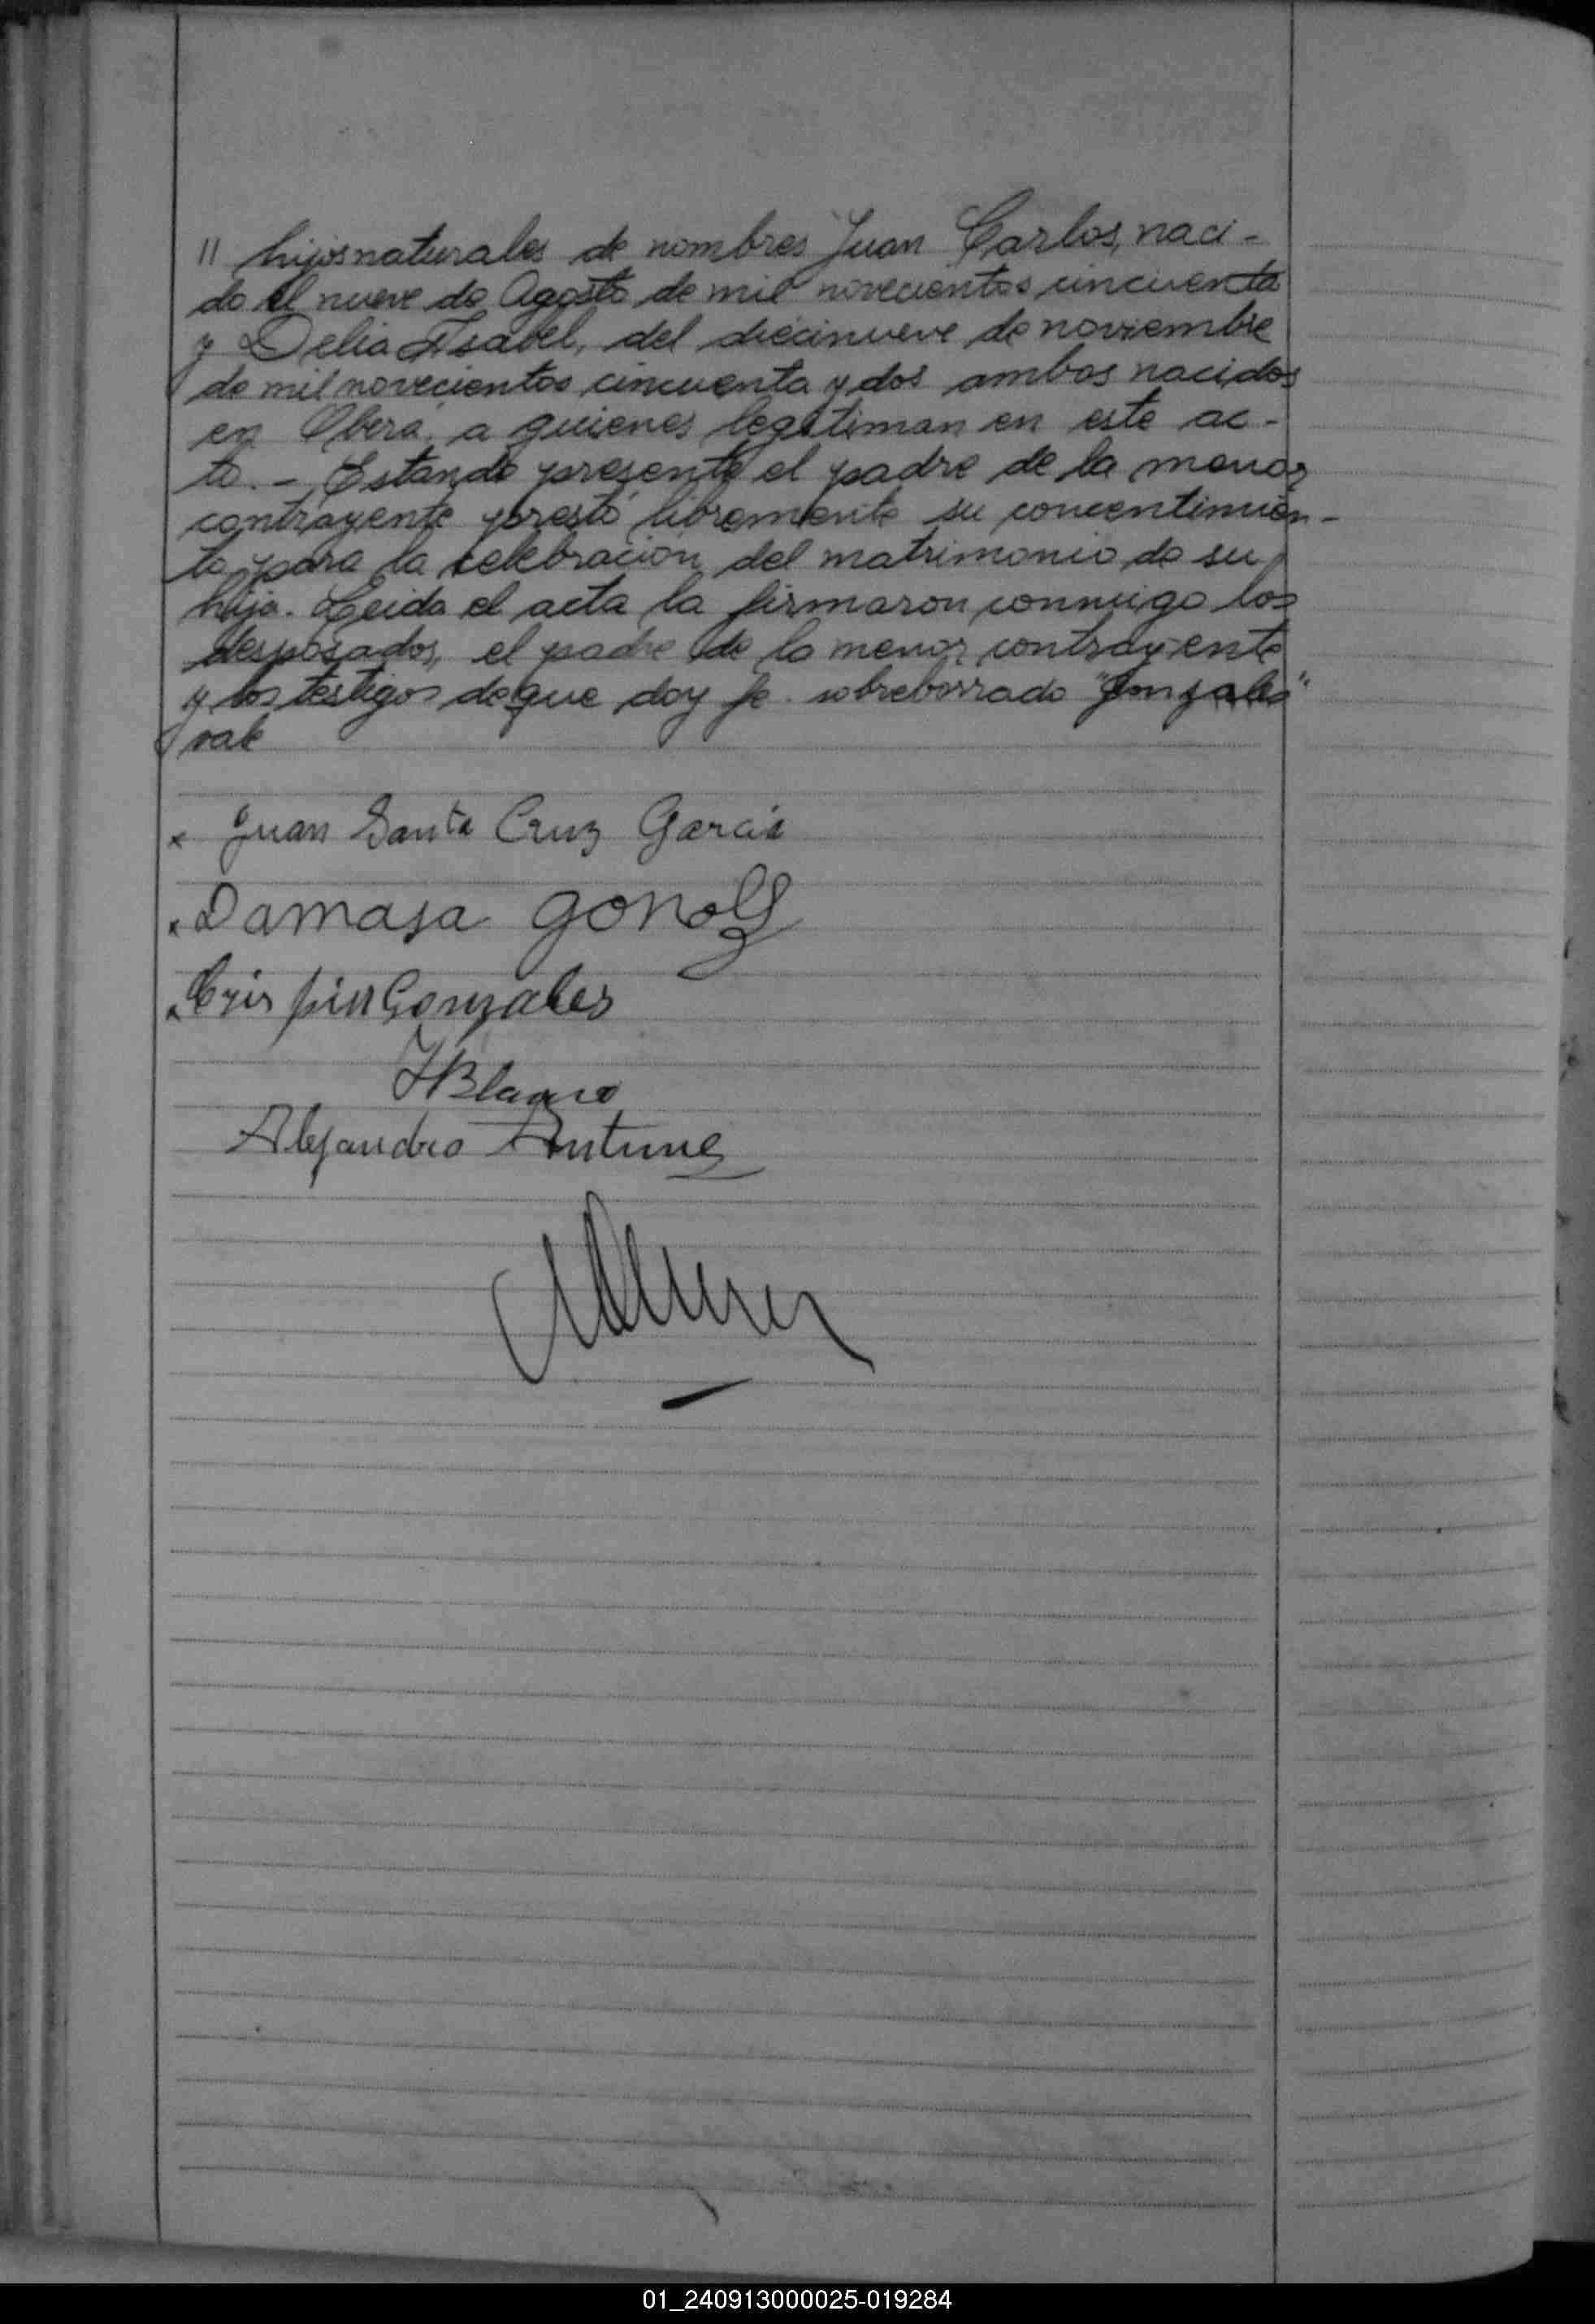 " hijos naturales de nombres Juan Carlos, naci-
do el nueve de Agosto de mil novecientos cincuenta
y Delia Isabel, del diecinueve de noviembre
de mil novecientos cincuenta y dos ambos nacidos
en Oberá, a quienes legitiman en este ac-
to. - Estando presente el padre de la menor
contrayente prestó libremente su concentimien-
to para la celebración del matrimonio de su
hija. Leida el acta la firmaron conmigo los
desposados, el padre de la menor contrayente
y los testigos de que doy fe. sobreborrado "Gonzales"
vale
x Juan Santa Cruz García
x Damasa
x Crispin Gonzales
Blanco
Alejandro Antunez
01_240913000025-019284